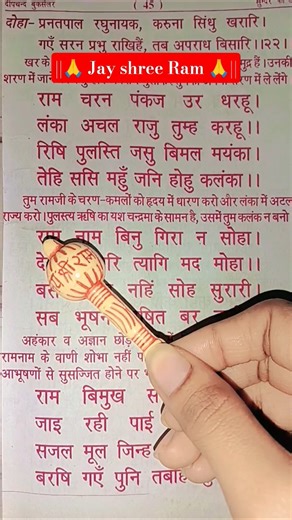 दीपचन्द बुकसेलर ( 45 ) सुन्दर
दोहा- प्रनतपाल रघुनायक, करुना सिंधु खरारि।
गएँ सरन प्रभु राखिहैं, तव अपराध बिसारि।।२२।
|| 🙏 Jay shree Ram 🙏 ||
खर के मुद्र हैं। उनकी
शरण में जा में ले लेंगे
राम चरन पंकज उर धरहू।
लंका अचल राजु तुम्ह करहू।।
रिषि पुलस्ति जसु बिमल मयंका।
तेहि ससि महुँ जनि होहु कलंका।।
तुम रामजी के चरण-कमलों को हृदय में धारण करो और लंका में अटल
राज्य करो। पुलस्त्य ऋषि का यश चन्द्रमा के सामन है, उसमें तुम कलंक न बनो
राम नाम बिनु गिरा न सोहा।
त्यागि मद मोहा।।
नहिं सोह सुरारी।
सब भूषन बर
श्री राम
अहंकार व अज्ञान छोड़
रामनाम के वाणी शोभा नहीं
आभूषणों से सुसज्जित होने पर
राम बिमुख
जाइ रही पाई
सजल मूल जिन्ह
बरषि गएँ पुनि तबहिं